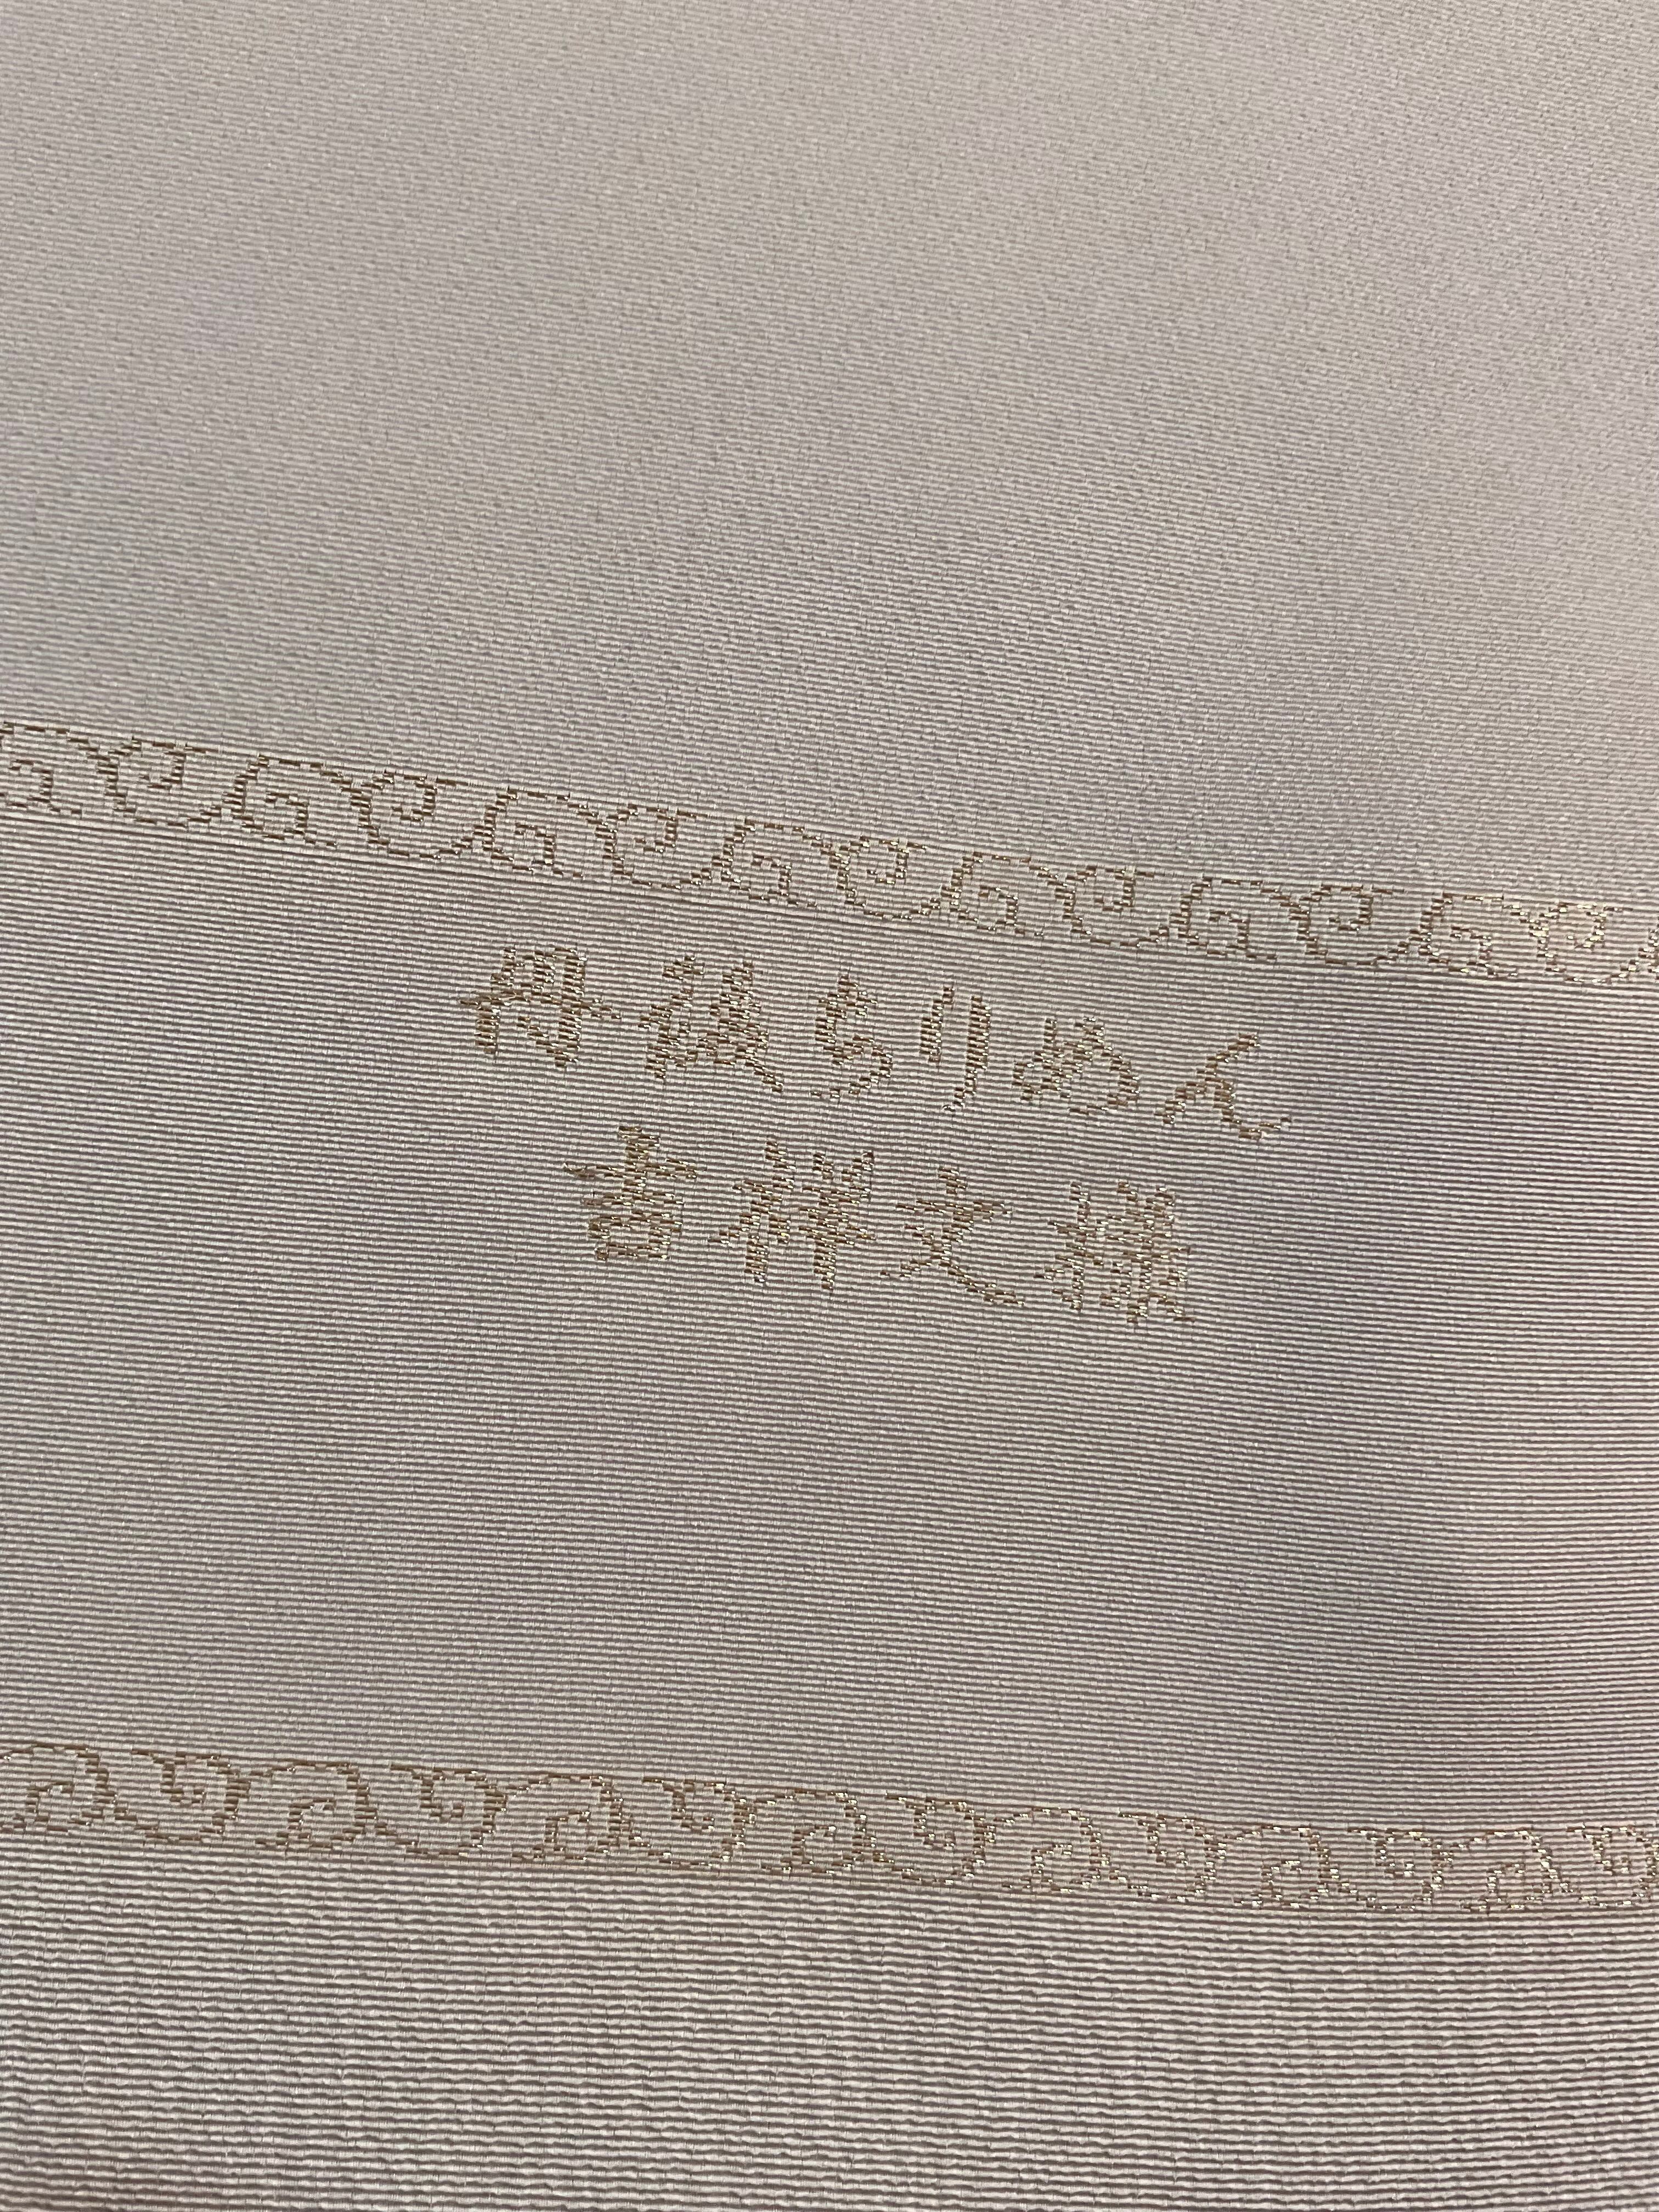 丹後ちりめん
吉祥文様